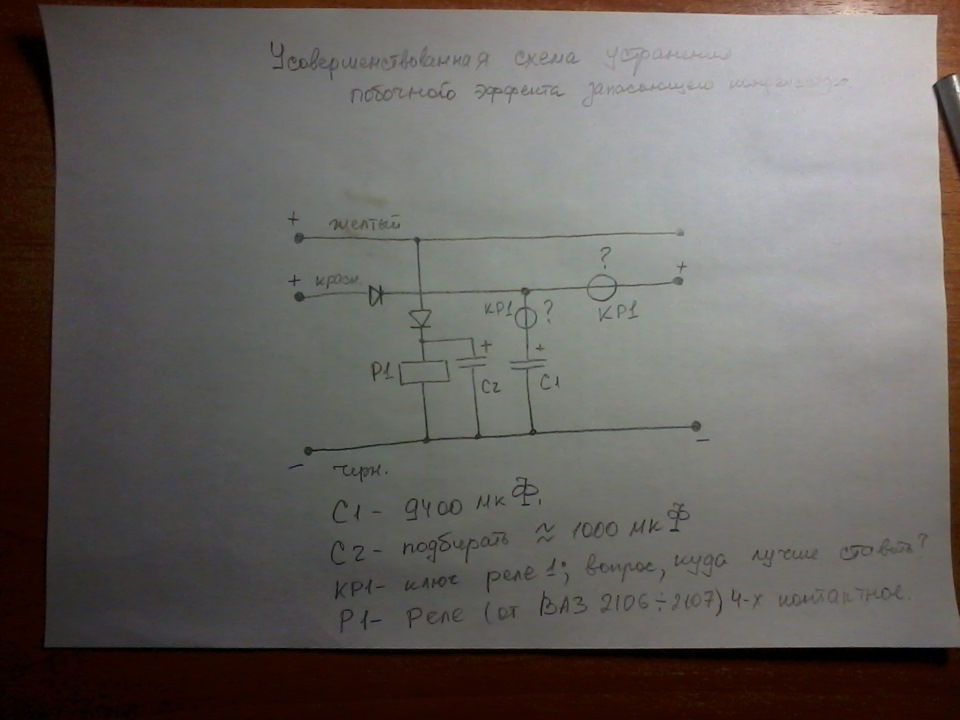 Усовершенствованная схема устранения
побочного эффекта запасающего конденсатора
+ желтый
+ красн.
?
+
КР1 ?
КР1
+
+
Р1
С2
С1
–
–
черн.
С1 - 9400 мкФ.
С2 - подбирать ≈ 1000 мкФ
КР1 - ключ реле 1; вопрос, куда лучше ставить?
Р1 - Реле (от ВАЗ 2106÷2107) 4-х контактное.